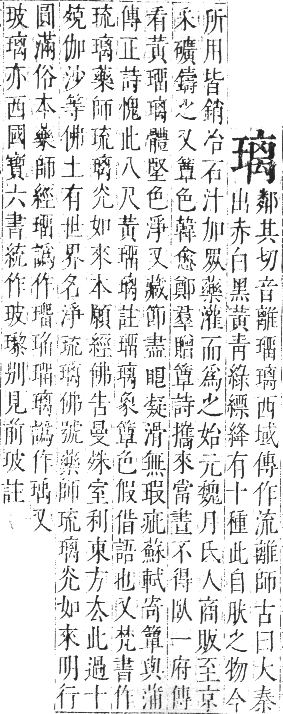 璃
鄰其切音離瑠璃西域傳作流離師古曰大秦
出赤白黑黃青綠縹絳有十種此自肰之物今
所用皆銷冶石汁加眾藥灌而爲之始元魏月氏人商販至京
采礦鑄之又簟色韓愈鄭羣贈簟詩攜來當晝不得臥一府傳
看黃瑠璃體堅色淨又藏節盡眼凝滑無瑕疵蘇軾寄簟與蒲
傳正詩愧此八尺黃瑠璃註瑠璃象簟色假借語也又梵書作
琉璃藥師琉璃灮如來本願經佛告曼殊室利東方厺此過十
殑伽沙等佛土有世界名淨琉璃佛號藥師琉璃灮如來明行
圓滿俗本藥師經瑠譌作瑠瑠璃譌作瑀又
玻璃亦西國寶六書統作玻瓈別見前玻註